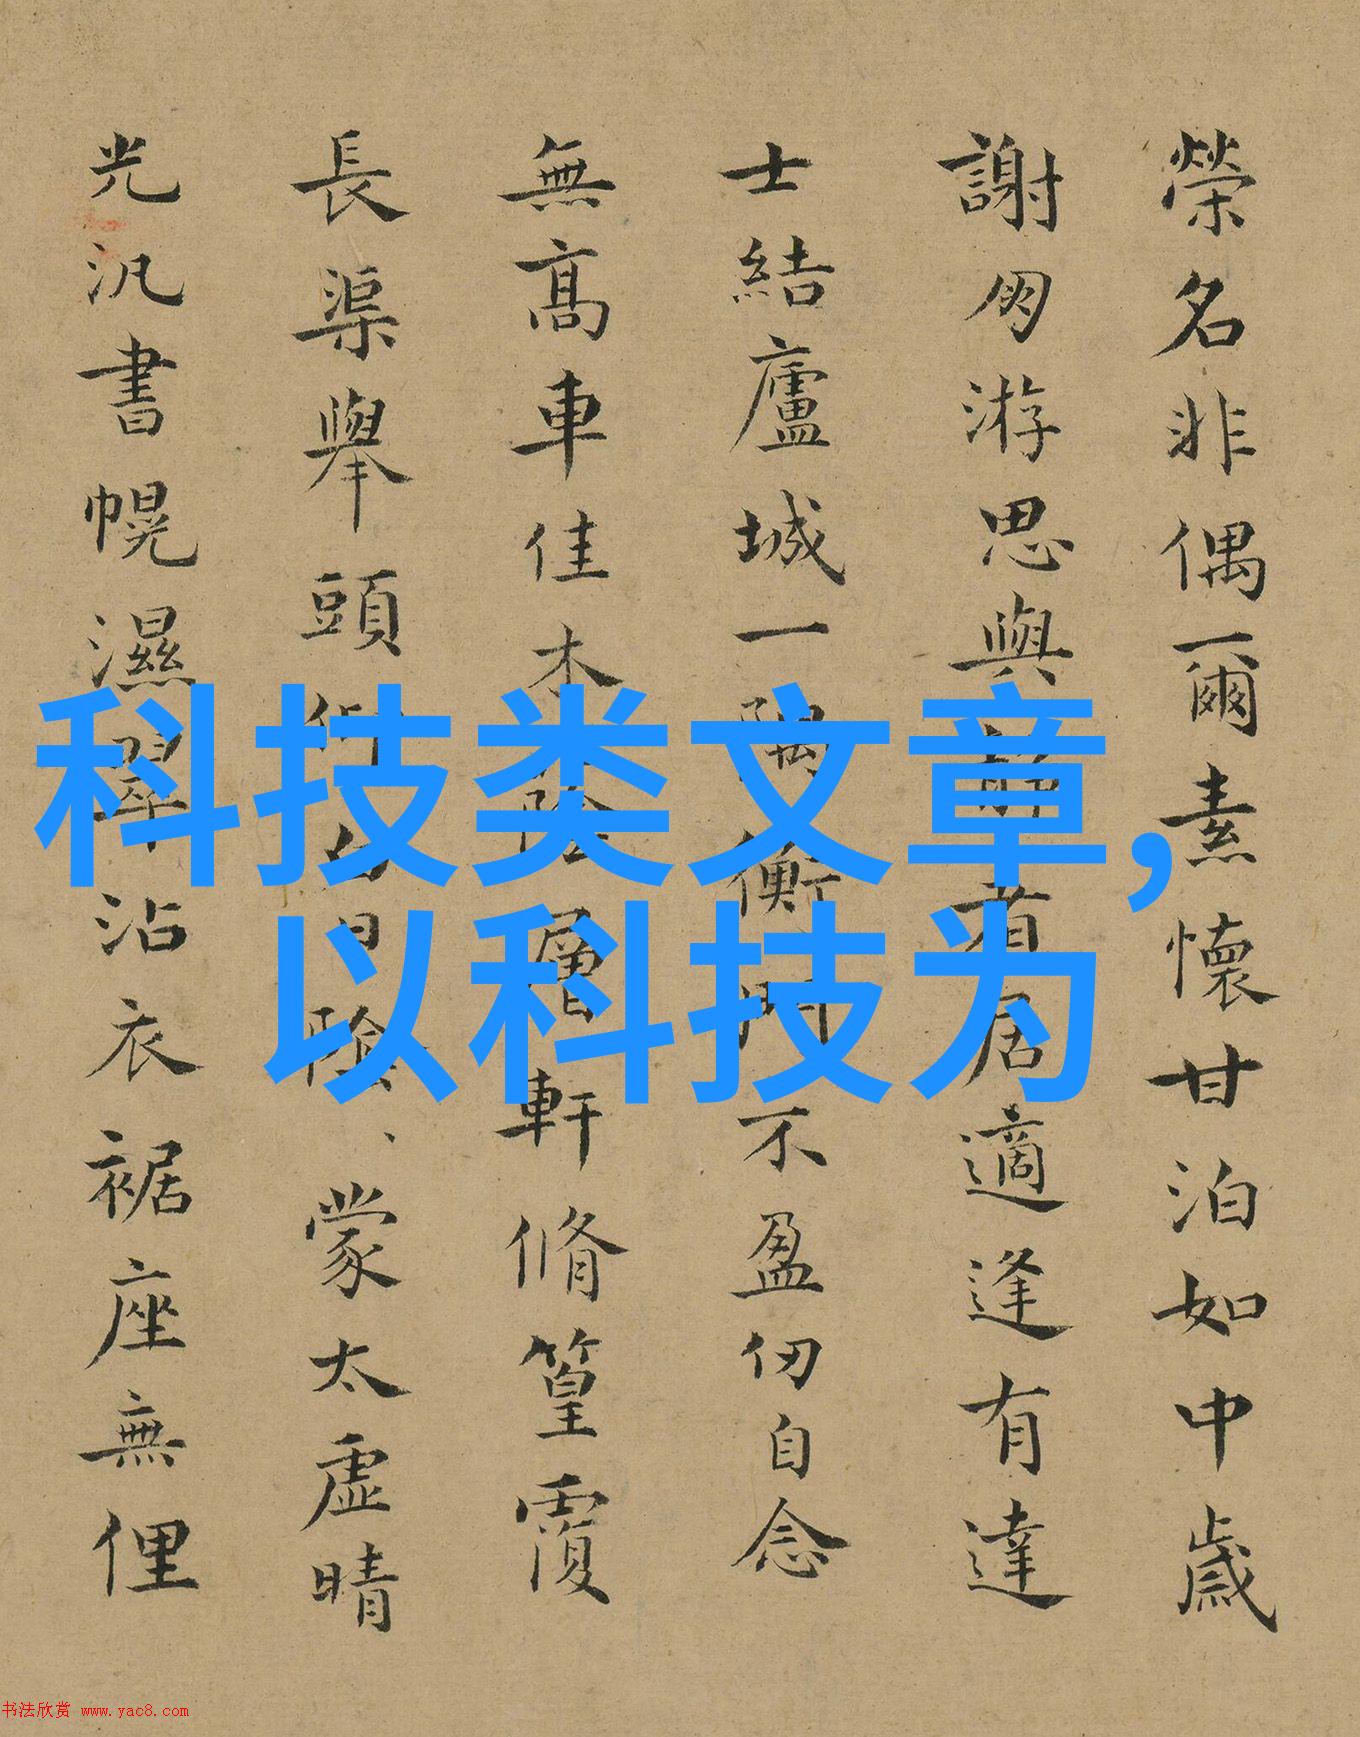 科技类文章,
以科技为
榮名非偶爾素懷甘泊如中歲
謝朋游思與靜者居適逢有達
士結廬城一隅衡門不盈仞自念
無高車佳木陰層軒脩篁覆
長渠舉頭仰白日陰、蒙太虛晴
光汎書幌濕翠沾衣裾座無俚
书法欣赏 www.yac8.com